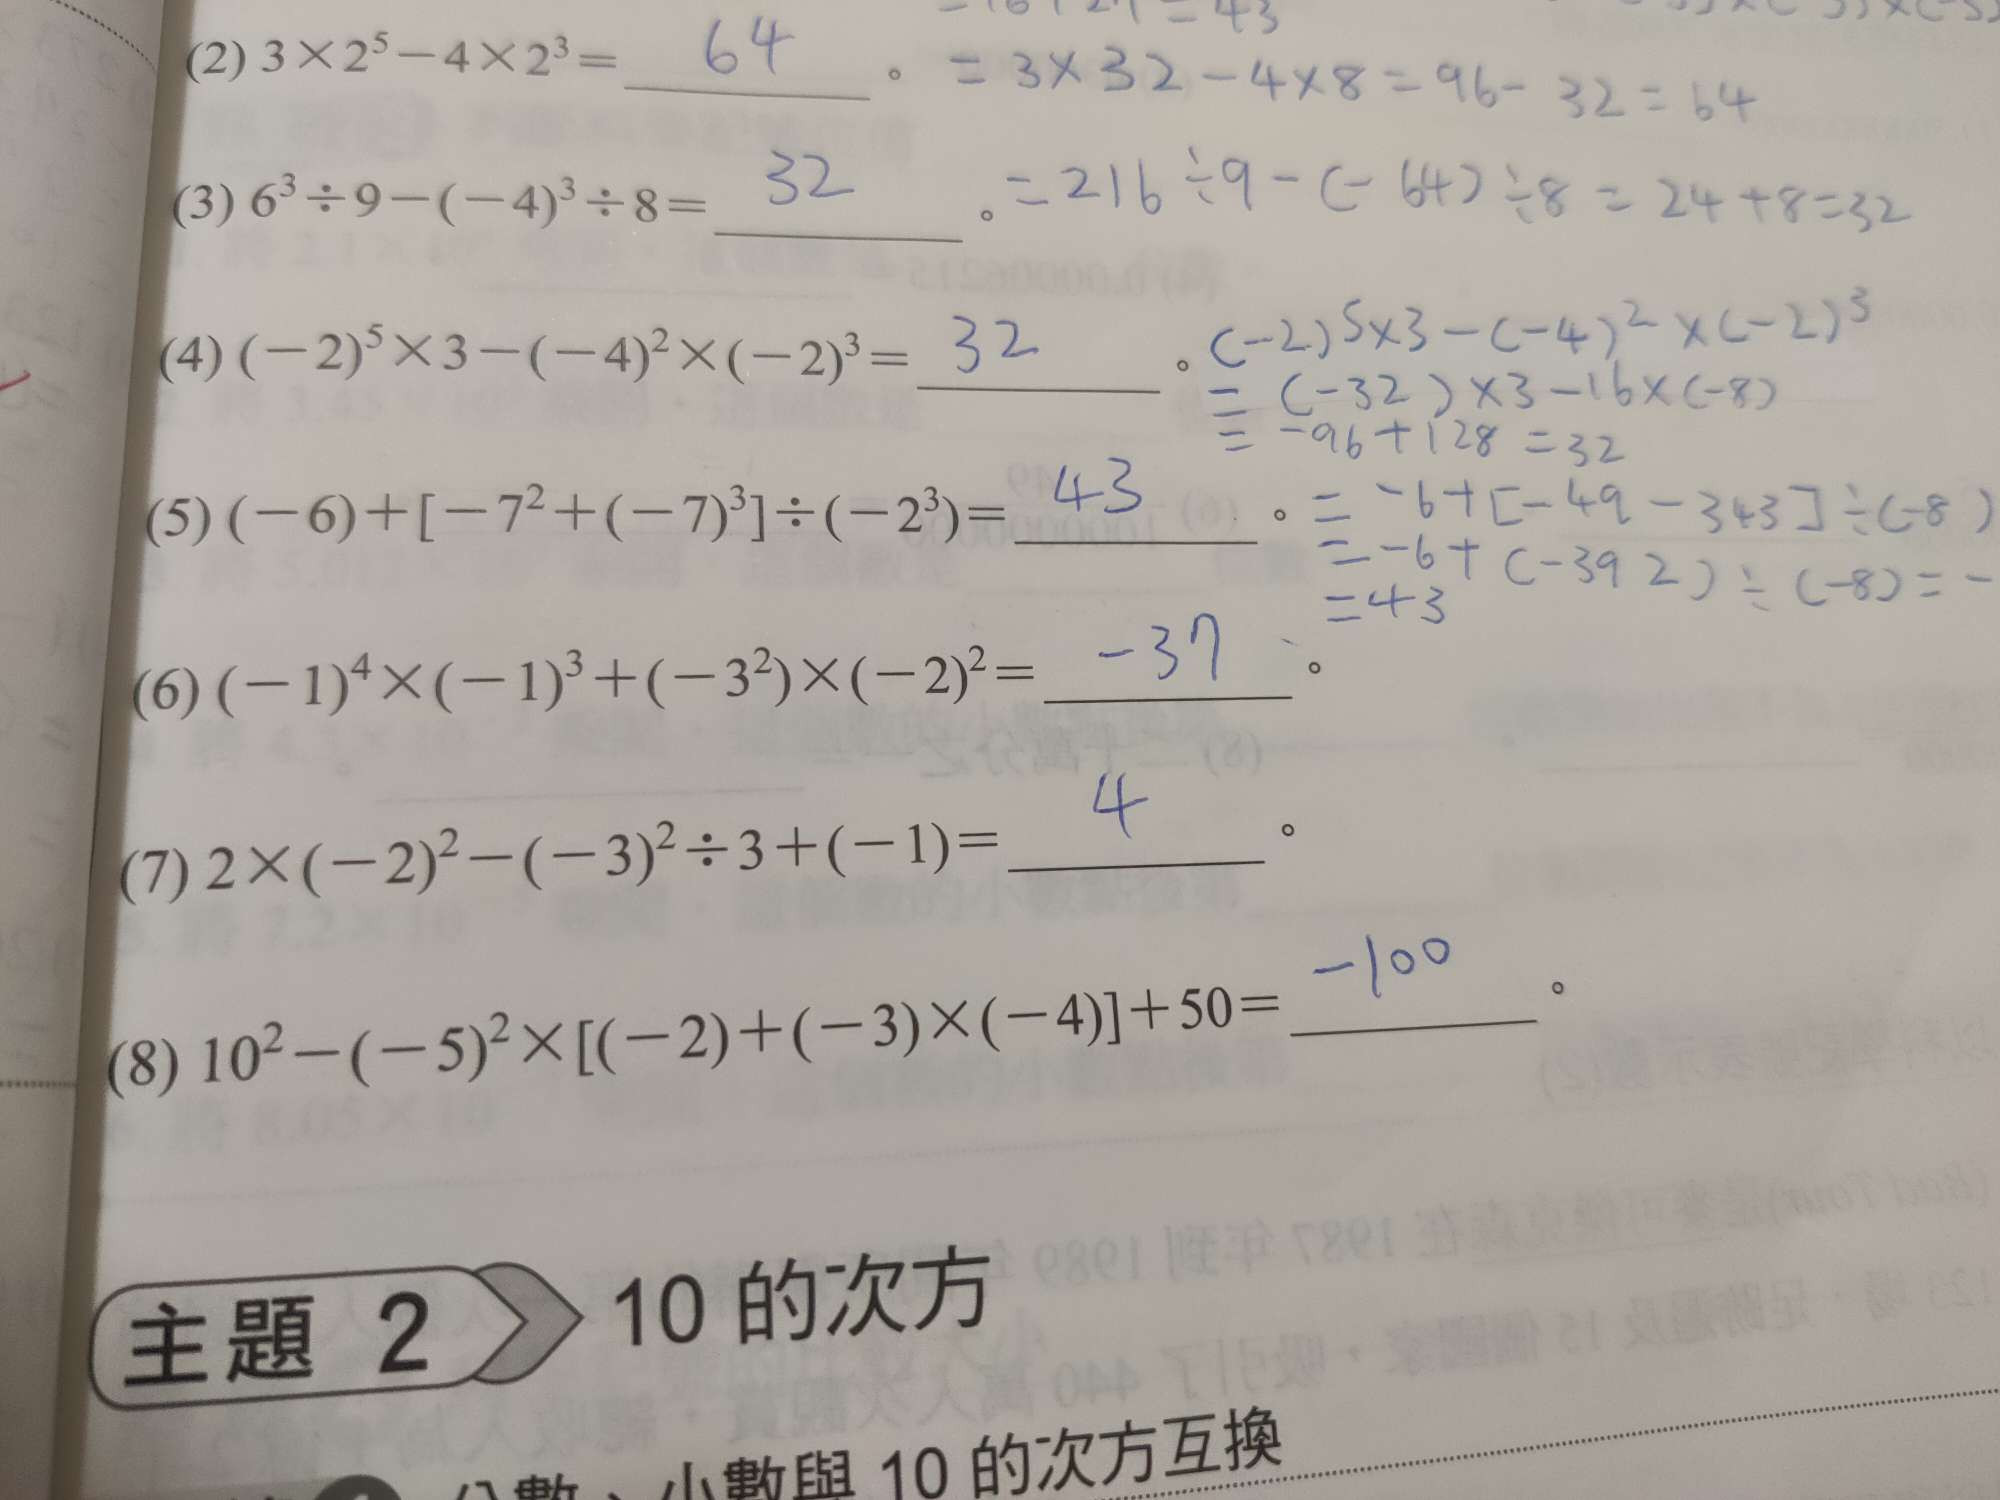 (2) 3×2⁵−4×2³= 64 。 = 3×32−4×8=96−32=64
(3) 6³÷9−(−4)³÷8= 32 。 =216÷9−(−64)÷8=24+8=32
(4) (−2)⁵×3−(−4)²×(−2)³= 32 。 (−2)⁵×3−(−4)²×(−2)³
= (−32)×3−16×(−8)
= −96+128=32
(5) (−6)+[−7²+(−7)³]÷(−2³)= 43 。 = −6+[−49−343]÷(−8)
= −6+(−392)÷(−8)=−
=43
(6) (−1)⁴×(−1)³+(−3²)×(−2)²= −37 。
(7) 2×(−2)²−(−3)²÷3+(−1)= 4 。
(8) 10²−(−5)²×[(−2)+(−3)×(−4)]+50= −100 。
主題 2 10 的次方
分數、小數與 10 的次方互換